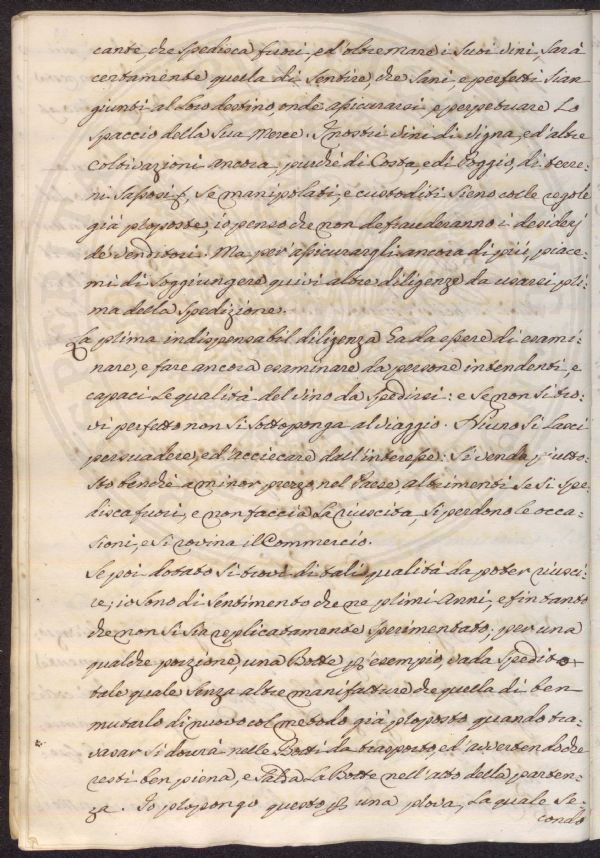 cante, che spedisca fuori, ed' oltremare i suoi vini, sarà
certamente quella di sentire, che sani, e perfetti sian
giunti al loro destino, onde assicurarsi, e perpetuare lo
spaccio della sua merce. I nostri vini di Signa, ed' altre
coltivazioni ancora, purchè di Costa, e di Poggio, di terre-
ni sassosi &, se manipolati, e custoditi sieno colle regole
già proposte, io penso che non defrauderanno i desiderj
de' venditori. Ma per assicurargli ancora di più, piace-
mi di soggiungere quivi altre diligenze da usarsi pri-
ma della spedizione.
La prima indispensabil diligenza ha da essere di esami-
nare, e fare ancora esaminare da persone intendenti, e
capaci le qualità del vino da spedirsi: e se non si tro-
vi perfetto non si sottoponga al viaggio. Niuno si lasci
persuadere, ed' acciecare dall' interesse: si venda piutto-
sto benchè a minor prezzo nel Paese, altrimenti se si spe-
disca fuori, e non faccia la riuscita, si perdono le occa-
sioni, e si rovina il Commercio.
Se poi dotato si trovi di tali qualità da poter riusci-
re; io sono di sentimento che ne primi Anni, e fin tanto
che non si sia replicatamente sperimentato, per una
qualche porzione, una Botte p. esempio, vada spedito
tale quale senza altre manifatture che quella di ben
mutarlo di nuovo col metodo già proposto quando tra-
vasar si dovrà nelle Botti da trasporto, ed' avvertendo che
resti ben piena, e salda la Botte nell' atto della parten-
za. Io propongo questo p. una prova, la quale se-
condo